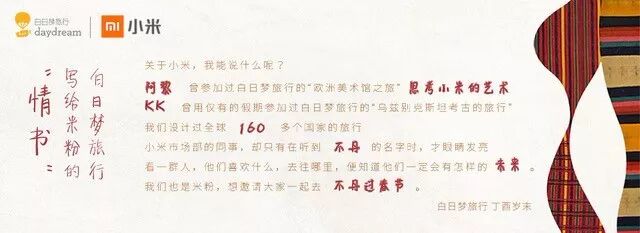 白日梦旅行
daydream
小米
白日梦旅行
写给米粉的
“情书”
关于小米，我能说什么呢？
阿黎 曾参加过白日梦旅行的“欧洲美术馆之旅” 思考小米的艺术
KK 曾用仅有的假期参加过白日梦旅行的“乌兹别克斯坦考古的旅行”
我们设计过全球 160 多个国家的旅行
小米市场部的同事，却只有在听到 不丹 的名字时，才眼睛发亮
看一群人，他们喜欢什么，去往哪里，便知道他们一定会有怎样的 未来 。
我们也是米粉，想邀请大家一起去 不丹过春节 。
白日梦旅行 丁酉岁末